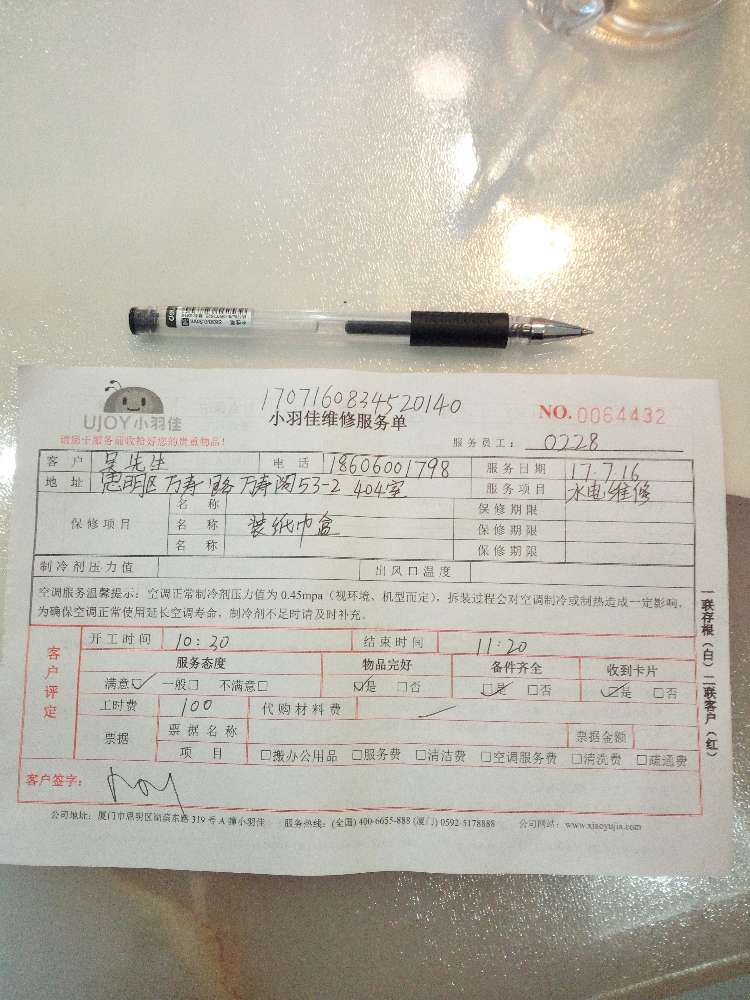 1707160834520140
UJOY小羽佳
小羽佳维修服务单
NO.0064432
请您于服务前收拾好您的贵重物品!
服务员工: 0228
客户 吴先生 电话 18606001798 服务日期 17.7.16
地址 思明区万寿路万寿阁53-2 404室 服务项目 水电维修
保修项目
名称 保修期限
名称 装纸巾盒 保修期限
名称 保修期限
制冷剂压力值 出风口温度
空调服务温馨提示:空调正常制冷剂压力值为 0.45mpa(视环境、机型而定),拆装过程会对空调制冷或制热造成一定影响,
为确保空调正常使用延长空调寿命,制冷剂不足时请及时补充。
客户评定
开工时间 10:20 结束时间 11:20
服务态度 物品完好 备件齐全 收到卡片
满意☑ 一般□ 不满意□ ☑是 □否 ☑是 □否 ☑是 □否
工时费 100 代购材料费
票据 票据名称 票据金额
项目 □搬办公用品 □服务费 □清洁费 □空调服务费 □清洗费 □疏通费
客户签字:
公司地址:厦门市思明区湖滨东路 319 号 A 幢小羽佳 服务热线:(全国) 400-6655-888 (厦门) 0592-5178888 公司网站:www.xiaoyujia.com
一联存根(白)二联客户(红)